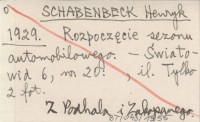 o SCHABENBECK Henryk
1929. Rozpoczęcie sezonu
automobilowego. – Świato-
wid 6, nr. 20. , il. Tylko
2 fot.
Z Podhala i Zakopanego.